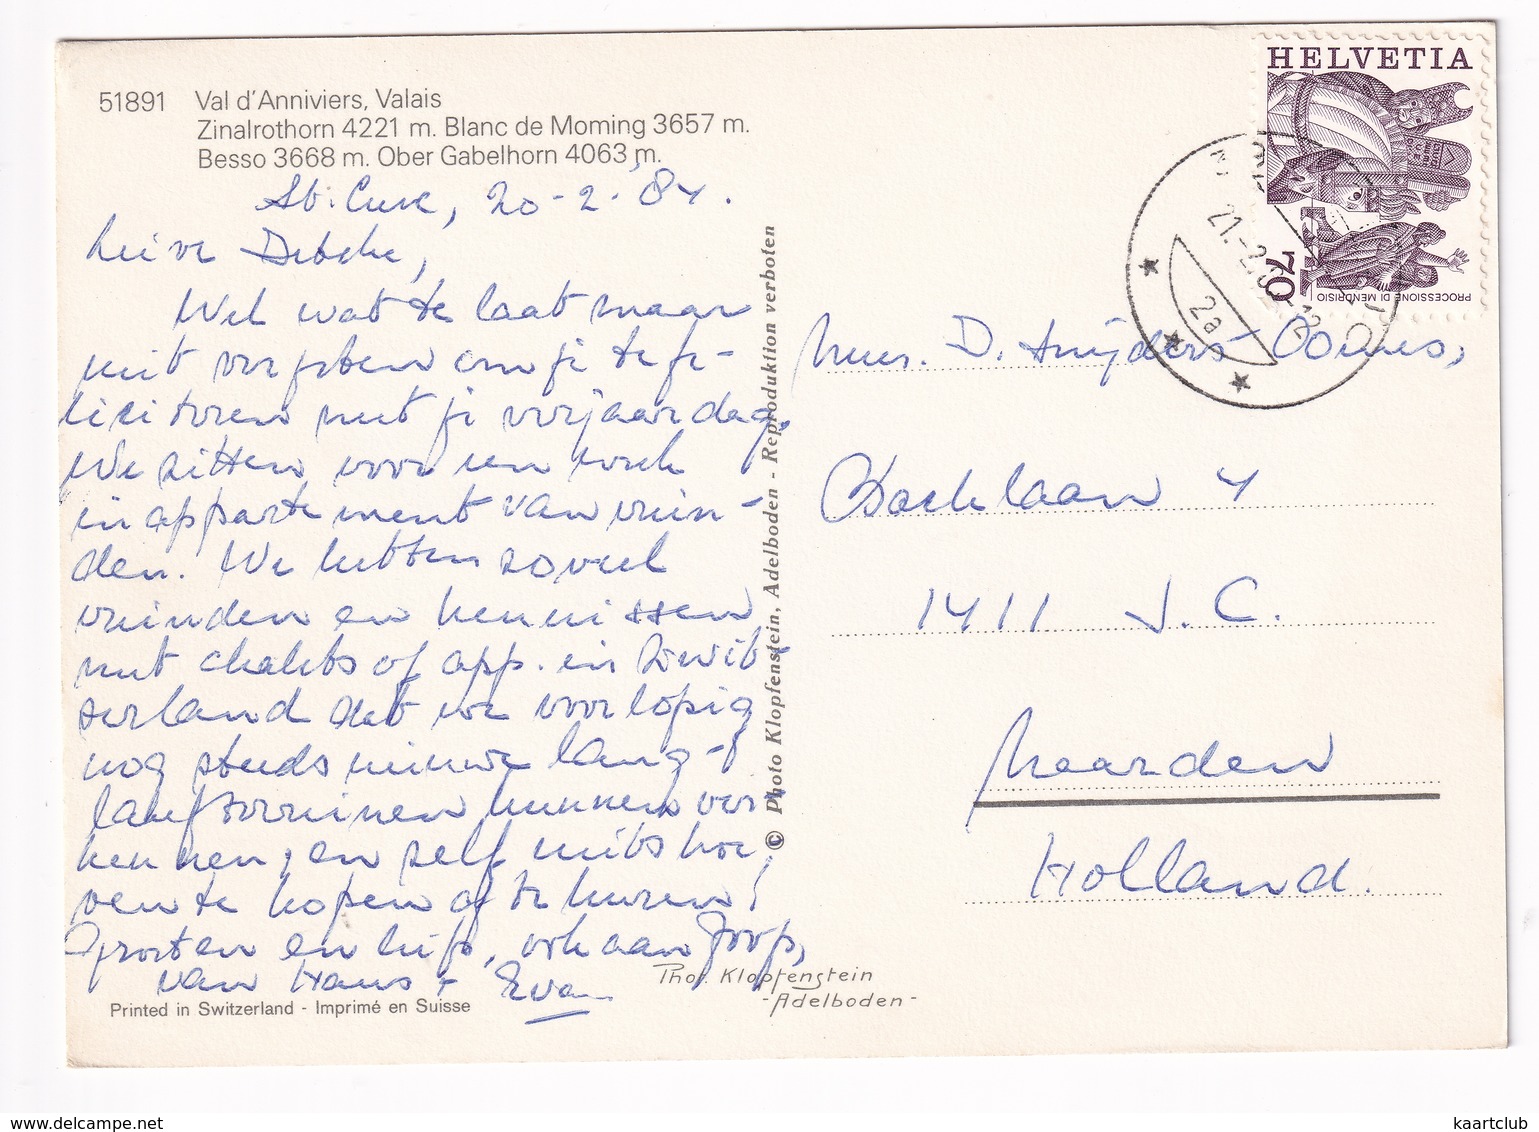 51891 Val d'Anniviers, Valais
Zinalrothorn 4221 m. Blanc de Moming 3657 m.
Besso 3668 m. Ober Gabelhorn 4063 m.
St. Luc, 20-2-'84.
Lieve
Wel wat te laat maar
niet vergeten om je te fe-
liciteren met je verjaardag.
We zitten voor een week
in appartement van vrien-
den. We hebben zoveel
vrienden en kennissen
met chalets of app. in Zwit-
serland dat we voorlopig
nog steeds nieuwe lang-
laufterreinen kunnen ver-
kennen, en zelf niets hoe-
ven te kopen of te huren!
Groeten en liefs, ook aan Joop,
van Hans + Eva
Printed in Switzerland - Imprimé en Suisse
Phot. Klopfenstein
- Adelboden -
© Photo Klopfenstein, Adelboden - Reproduktion verboten
HELVETIA
70
PROCESSIONE DI MENDRISIO
21.-2.
-12
2a
Mevr. D. Snijders-
laan 4
1411 J.C.
Naarden
Holland.
kaartclub
www.delcampe.net